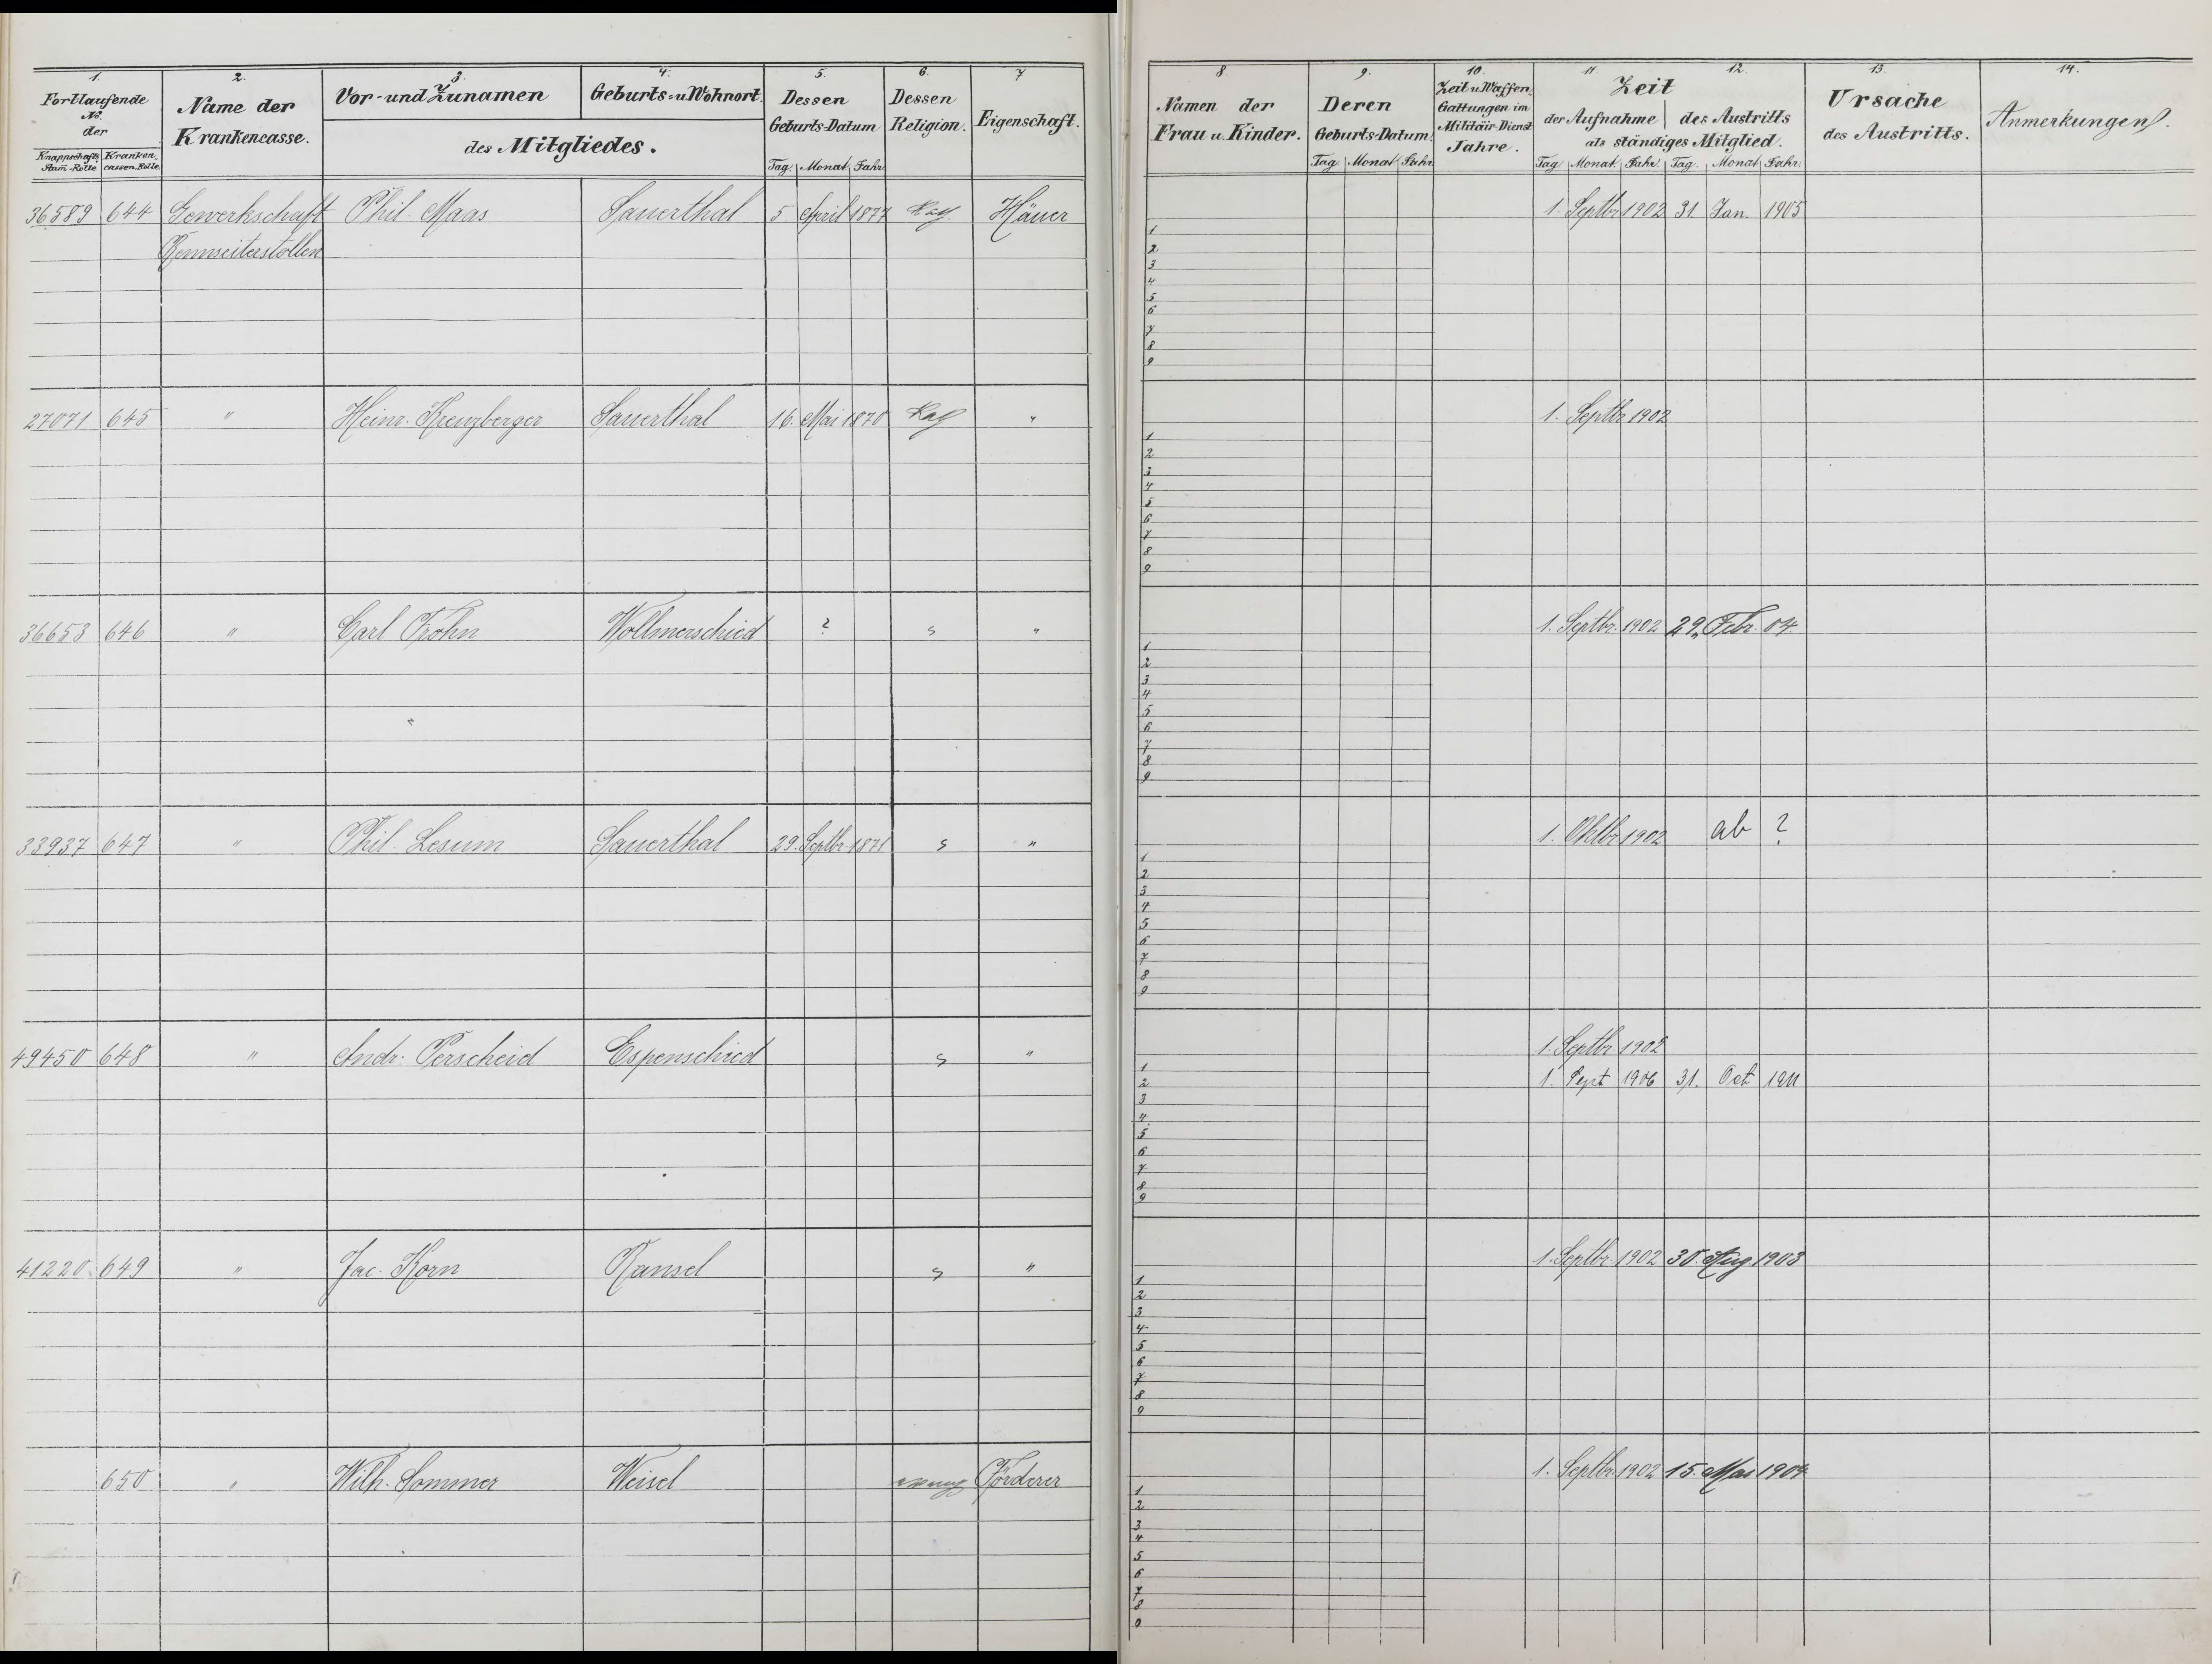 1. 2. 3. 4. 5. 6. 7
Fortlaufende No. der
Knappschafts Stam-Rolle Kranken-cassen-Rolle
Name der Krankencasse.
Vor- und Zunamen
Geburts- u. Wohnort.
des Mitgliedes.
Dessen Geburts-Datum
Tag. Monat Jahr.
Dessen Religion.
Eigenschaft.
36589 644 Gewerkschaft Phil. Maas Sauerthal 5. April 1877 Kath Häuer
Rennseiterstollen
27071 645 " Heinr. Kreuzberger Sauerthal 16. Mai 1870 Kath "
36653 646 " Carl Frohn Wollmerschied ? s "
"
33937 647 " Phil. Lesum Sauerthal 29. Septbr. 1871 s "
49450 648 " Andr. Perscheid Espenschied s "
41220 649 " Jac. Korn Ransel s "
650 " Wilh. Sommer Weisel evang Förderer
8. 9. 10. 11. 12. 13. 14.
Namen der Frau u. Kinder.
Deren Geburts-Datum.
Tag. Monat Jahr.
Zeit u. Waffen-Gattungen im Militair-Dienst Jahre.
Zeit
der Aufnahme des Austritts
als ständiges Mitglied.
Tag Monat Jahr. Tag. Monat Jahr.
Ursache des Austritts.
Anmerkungen.
1. Septbr. 1902 31. Jan. 1905
1
2
3
4
5
6
7
8
9
1. Septbr 1902
1
2
3
4
5
6
7
8
9
1. Septbr. 1902 29. Febr. 04.
1
2
3
4
5
6
7
8
9
1. Oktbr. 1902 ab ?
1
2
3
4
5
6
7
8
9
1. Septbr. 1902
1
1. Sept 1906 31. Oct 1911
2
3
4
5
6
7
8
9
1. Septbr. 1902 30. Aug 1903
1
2
3
4
5
6
7
8
9
1. Septbr. 1902 15. Mai 1904
1
2
3
4
5
6
7
8
9